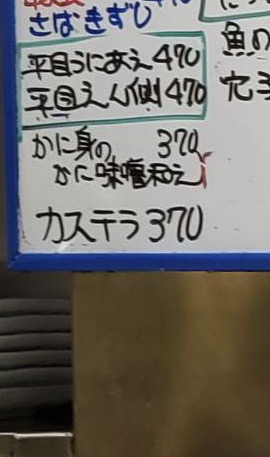 さばきずし
平目うにあえ 470
平目えん側 470
かに身の 370
かに味噌和え
カステラ 370
魚の
穴子